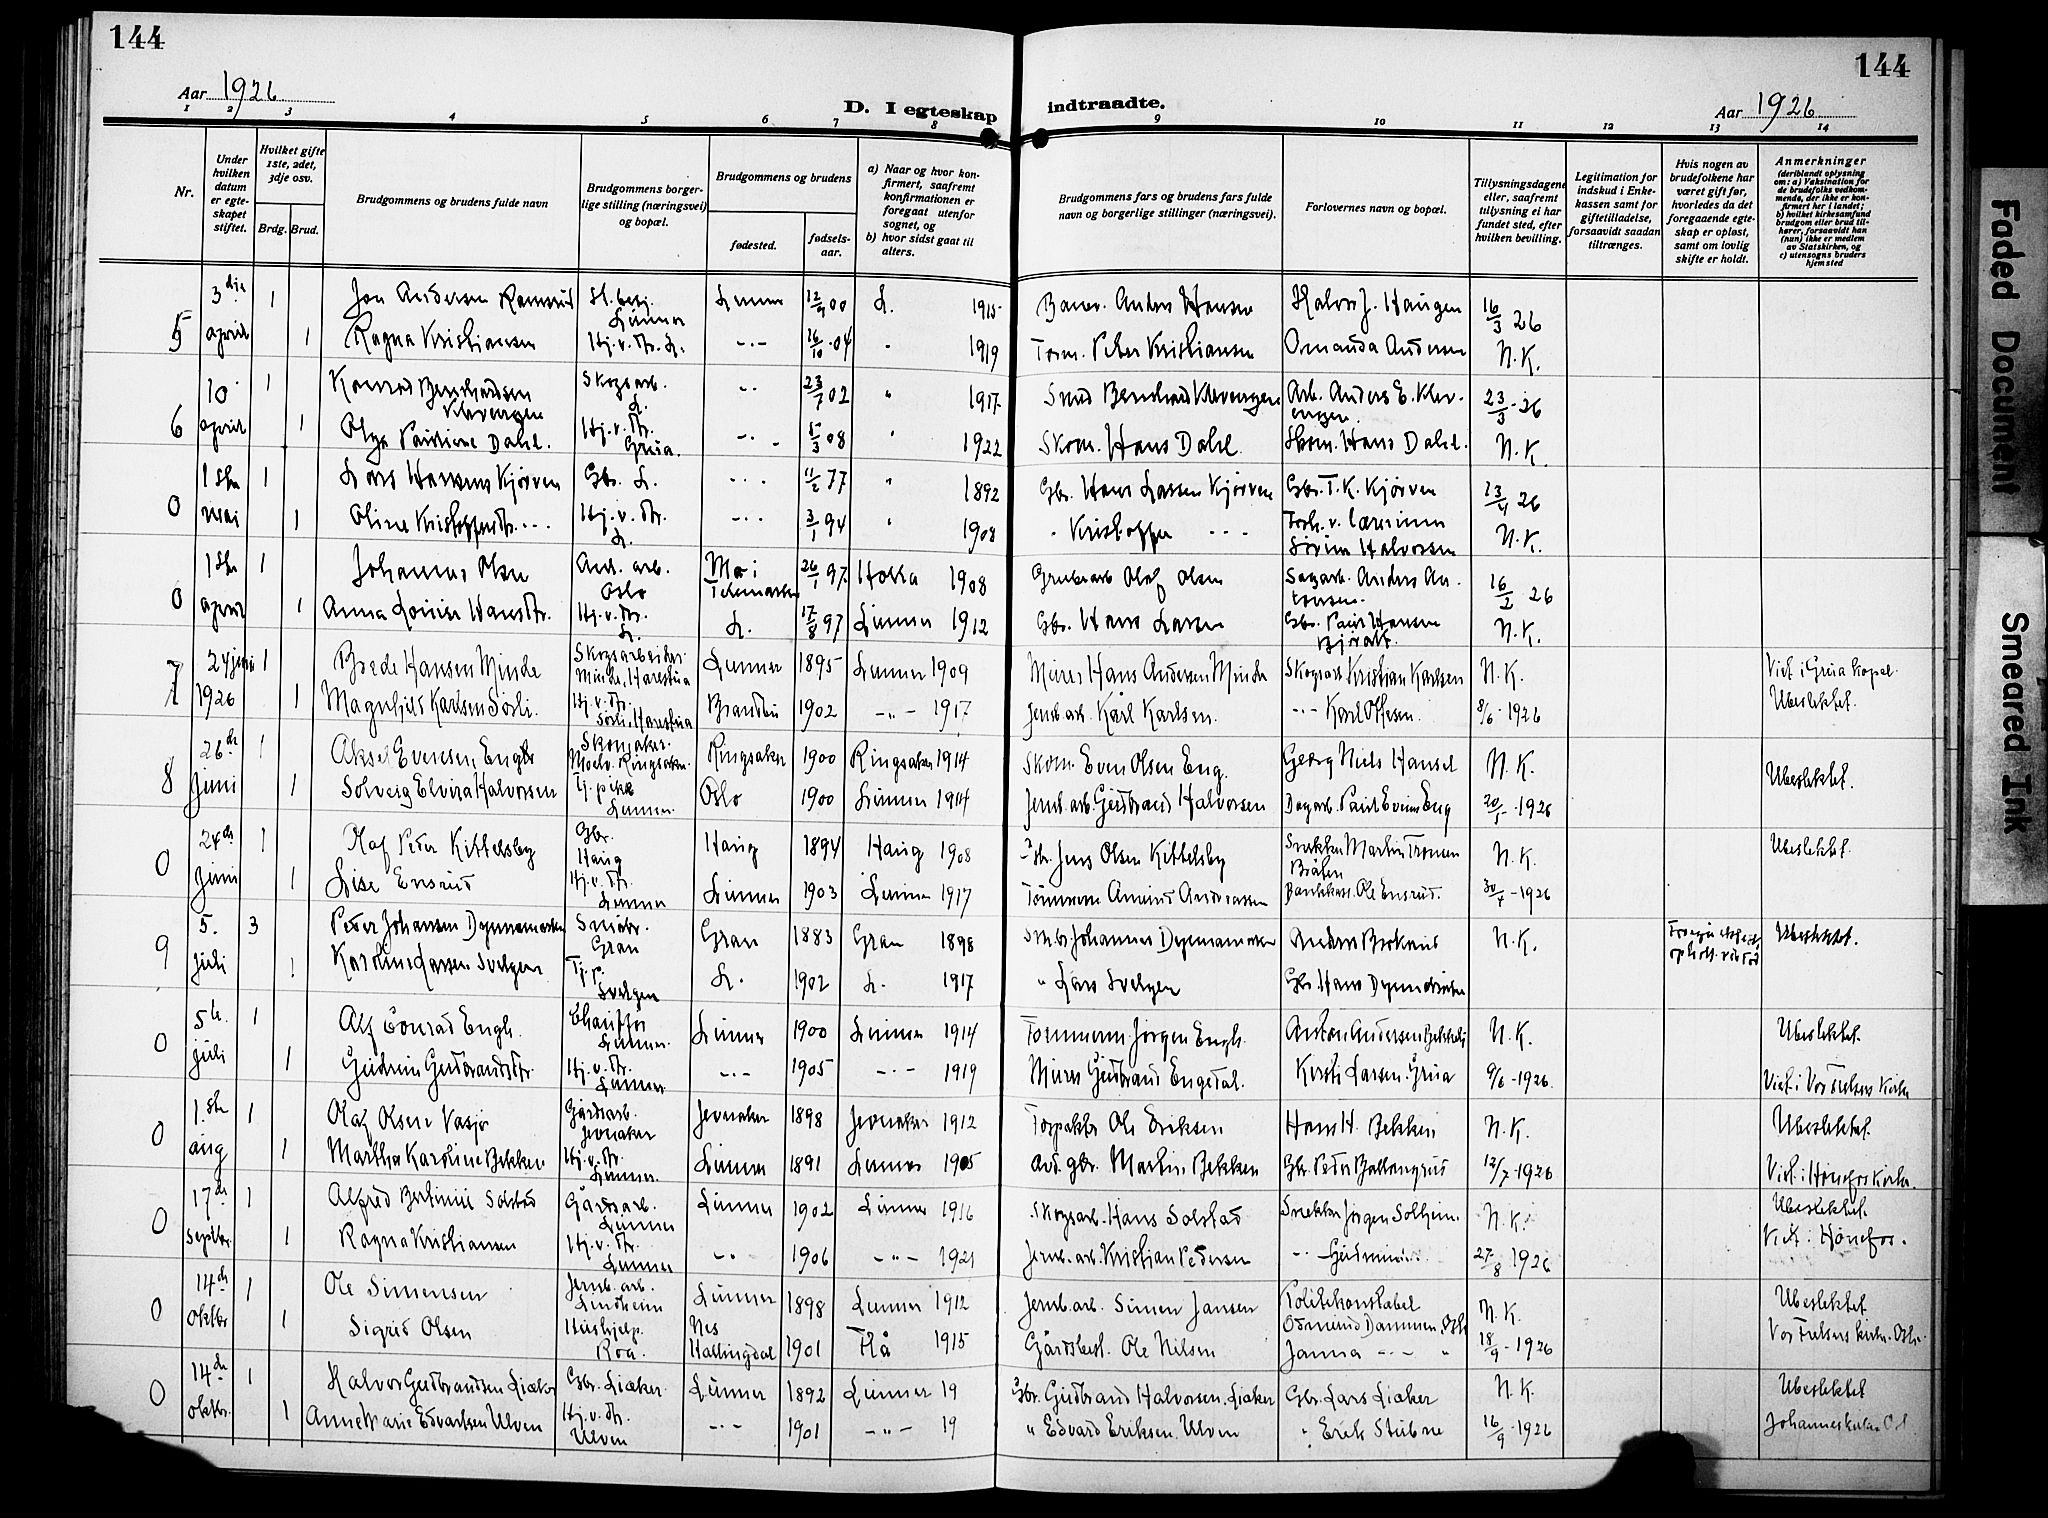 144
144
Aar 1926
D. I egteskap indtraadte.
Aar 1926
1 2 3 4 5 6 7 8 9 10 11 12 13 14
Nr.
Under hvilken datum er egteskapet stiftet.
Hvilket gifte 1ste, 2det, 3dje osv.
Brdg. Brud.
Brudgommens og brudens fulde navn
Brudgommens borgerlige stilling (næringsvei) og bopæl.
Brudgommens og brudens
fødested.
fødselsaar.
a) Naar og hvor konfirmert, saafremt konfirmationen er foregaat utenfor sognet, og
b) hvor sidst gaat til alters.
Brudgommens fars og brudens fars fulde navn og borgerlige stillinger (næringsvei).
Forlovernes navn og bopæl.
Tillysningsdagene eller, saafremt tillysning ei har fundet sted, efter hvilken bevilling.
Legitimation for indskud i Enkekassen samt for giftetilladelse, forsaavidt saadan tiltrænges.
Hvis nogen av brudefolkene har været gift før, hvorledes da det foregaaende egteskap er opløst, samt om lovlig skifte er holdt.
Anmerkninger
(deriblandt oplysning om: a) Vaksination for de brudefolks vedkommende, der ikke er konfirmert her i landet; b) hvilket kirkesamfund brudgom eller brud tilhører, forsaavidt han (hun) ikke er medlem av Statskirken, og c) utensogns bruders hjemsted
5 3dje 1 Jon Andersen Lunner 12/9 00 L. 1915 Anders Hansen Halvor J. Haugen 16/3 26
april 1 Ragna Kristiansen Hj.v.Fr. L. -"- 16/10 04 " 1919 Peter Kristiansen Andersen N.K.
6 10 1 Konrad Bernhardsen Klevengen Skogsarb. L. -"- 23/7 02 " 1917 Bernhard Klevengen Arb. Anders E. Klevengen 23/3-26
april 1 Olga Pauline Dahl. Hj.v.Fr. Grua. -"- 5/3 08 " 1922 Skom. Hans Dahl. Skom. Hans Dahl. N.K.
0 1ste 1 Lars Hansens Kjørven Gbr. L. -"- 11/2 77 " 1892 Gbr. Hans Larsen Kjørven Gbr. T. K. Kjørven 13/4 26
mai 1 Oline Kristoffersdtr. -"- Hj.v.Fr. L. -"- 3/1 94 " 1908 " Kristoffer -"- Halvorsen N.K.
0 1ste 1 Johannes Olsen And. arb. Oslo Telemarken 26/1 97 Holla 1908 Grubearb Olaf Olsen Sagarb. Anders 16/2 26
april 1 Anna Lovise Hansdtr. Hj.v.Fr. L. L. 17/8 97 Lunner 1912 Gbr. Hans Larsen Gbr. Paul Hansen N.K.
7 24 juni 1 Brede Hansen Minde Skogsarbeider Minde, Harestua Lunner 1895 Lunner 1909 Murer Hans Andersen Minde Skogsarb Kristian Karlsen N.K. Viet i Grua kapel.
1926 1 Magnhild Karlsen Sørli. Hj.v.Fr. Sørli, Harestua Brandbu 1902 -"- 1917 Jernb.arb. Karl Karlsen. -"- Karl Olsen. 8/6-1926 Ubeslektet.
8 26de 1 Aksel Evensen Engh Skomaker. Moelv. Ringsaker. Ringsaker 1900 Ringsaker 1914 Skom. Even Olsen Eng. Georg Niels Hansel N.K. Ubeslektet.
juni 1 Solveig Elvira Halvorsen Tj.pike Lunner. Oslo 1900 Lunner 1914 Jernb.arb. Gudbrand Halvorsen Dagarb. Paul Evensen Eng 20/5-1926
0 24de 1 Olaf Peter Kittelsby Gbr. Haug Haug 1894 Haug 1908 Gbr. Jens Olsen Kittelsby Snekker Martin Tronsen Bråten N.K. Ubeslektet.
juni 1 Lise Ensrud Hj.v.Fr. Lunner Lunner 1903 Lunner 1917 Tømmerm Amund Andreassen Bankkass. Ole Ensrud. 30/4-1926
9 5. 3 Peder Johansen Dynnamarken Småbr. Gran Gran 1883 Gran 1898 Småbr Johannes Dynnamarken N.K. Ubeslektet.
juli 1 Karoline Larsen Svelgen Tj.p. Svelgen L. 1902 L. 1917 " Lars Svelgen Gbr Hans
0 5te 1 Alf Conrad Engh. Chauffør Lunner. Lunner 1900 Lunner 1914 Tømmerm Jørgen Engh. Anton Andersen N.K. Ubeslektet.
juli 1 Gudrun Gudbrandsdtr. Hj.v.Fr. Lunner -"- 1905 -"- 1919 Murer Gudbrand Engedal. Kirsti Larsen. Grua 9/6-1926. Viet i Vor Frelsers Kirke
0 1.ste 1 Olaf Olsen Vasjø Gårdsarb. Jevnaker Jevnaker 1898 Jevnaker 1912 Ole Eriksen Hans H. Bekken N.K. Ubeslektet.
aug 1 Martha Karoline Bekken Hj.v.Fr. Lunner. Lunner 1891 Lunner 1905 gbr. Martin Bekken Gbr. Peder Ballangrud 12/7-1926 Viet i Hønefos Kirke.
0 17de 1 Alfred Bertinius Solstad Gårdsarb. Lunner Lunner 1902 Lunner 1916 Skogsarb. Hans Solstad Snekker Jørgen Solheim. N.K. Ubeslektet.
septbr. 1 Ragna Kristiansen Hj.v.Fr. Lunner -"- 1906 -"- 1921 Jernb.arb. Kristian Pedersen -"- 27/8 1926 Viet i Hønefos.
0 14de 1 Ole Simensen Jernb.arb. Lindheim Lunner 1898 Lunner 1912 Jernb.arb. Simen Jansen Politikonstabel Osmund Dammen, Oslo N.K. Ubeslektet
oktbr 1 Sigrid Olsen Hushjelp. Roa. Nes Hallingdal 1901 Flå 1915 Gårdbest. Ole Nilsen Janna -"- " 18/9-1926 Vor Frelsers kirke. Oslo.
0 14de 1 Halvor Gudbrandsen Liaker Gbr. Liaker. Lunner 1892 Lunner 19 Gbr. Gudbrand Halvorsen. Liaker Gbr. Lars Liaker N.K. Ubeslektet
oktbr. 1 Anne Marie Edvardsen Ulven Hj.v.Fr. Ulven -"- 1901 -"- 19 " Edvard Eriksen Ulven " Erik Stubne 16/9-1926
Faded Document
Smeared Ink